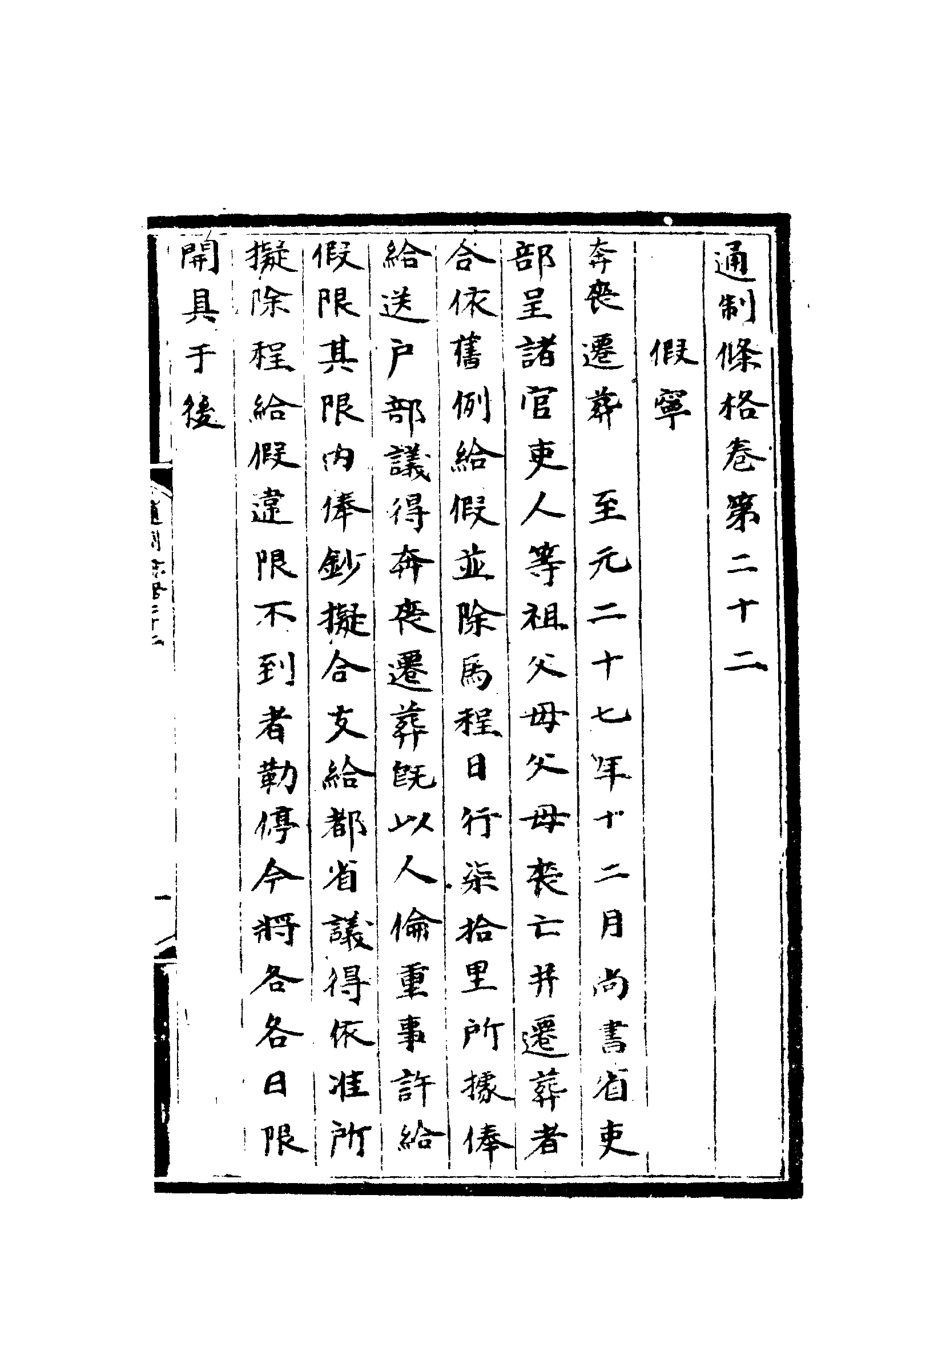 通制條格卷第二十二
假寧
奔喪遷葬　至元二十七年十二月尚書省吏
部呈諸官吏人等祖父母父母喪亡并遷葬者
合依舊例給假並除馬程日行柒拾里所據俸
給送户部議得奔喪遷葬旣以人倫重事許給
假限其限内俸鈔擬合支給都省議得依准所
擬除程給假違限不到者勒停今將各各日限
開具于後
通制條格二十二
一